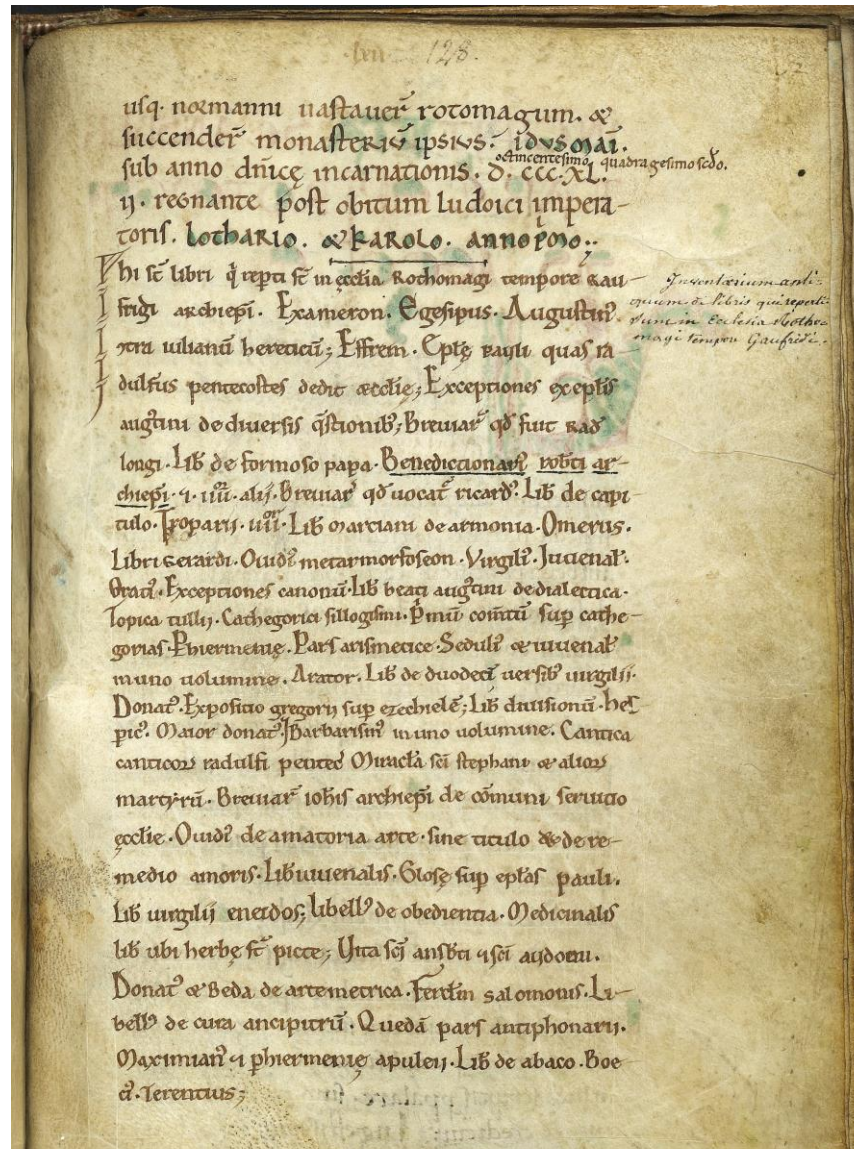 ·lxii· 128.
usq· normanni uastauer̄ rotomagum. &
succender̄ monasteriū ipsius. idus maī.
sub anno dn̄icę incarnationis. d̄. ccc·XL.
octincentesimo quadragesimo scdo.
ij. regnante post obitum ludoici impera-
toris. lothario. & karolo. anno p̄mo.
Hi st̄ libri q̄ rep̄ti st̄ in ęcclia Rothomagi tempore Gau-
fridi archiep̄i. Exameron. Egesipus. Augustin᷒
ɔtra iulianū hereticū; Effrem. Ep̄lę pauli quas ra-
dulfus pentecostes dedit æcclię; Exceptiones ex ep̄lis
auḡtini de diuersis q̄stionib᷒; Breuiar᷒ qd̄ fuit Rad̄
longi. Lib̄ de formoso papa. Benedictionari᷒ rob̄ti ar-
chiep̄i. ⁊. iiii. alij. Breuiar᷒ qd̄ uocat᷒ ricard᷒. Lib̄ de capi-
tulo. Troparii. iiiior. Lib̄ Marciani de armonia. Omerus.
Libri Gerardi. Ouidi᷒ metarmorfoseon. Virgili᷒. Juuenal᷒.
Orati᷒. Exceptiones canonū. Lib̄ beati auḡtini de dialectica.
Topica tullij. Cathegorici sillogismi. P̄mū com̄tū sup cathe-
gorias. Phiermenię. Pars arismetice. Seduli᷒ & iuuenal᷒
in uno uolumine. Arator. Lib̄ de duodecī uersib᷒ uirgilii.
Donat᷒. Expositio gregorij sup ezechielē; Lib̄ diuisionū. hes-
pic᷒. Maior donat᷒. Barbarism᷒ in uno uolumine. Cantica
canticoꝝ radulfi pentec̄ Miracl̄a sc̄i stephani & alioꝝ
martyrū. Breuiar᷒ ioh̄is archiep̄i de cōmuni seruitio
ęcclie. Ouidi᷒ de amatoria arte. sine titulo & de re-
medio amoris. Lib̄ iuuenalis. Glosę sup ep̄las pauli.
Lib̄ uirgilij eneidos; libell᷒ de obedientia. Medicinalis
lib̄ ubi herbę st̄ picte; Uita sc̄i ansb̄ti ⁊ sc̄i audoeni.
Donat᷒ & Beda de arte metrica. salomonis. Li-
bell᷒ de cura ancipitrū. Quedā pars antiphonarii.
Maximian᷒ ⁊ phiermenię apuleij. Lib̄ de abaco. Boe-
ti᷒. Terentius;
Inventarium anti-
quum de libris qui reperti
sunt in Ecclesia Rotho-
magi tempore Gaufridi.